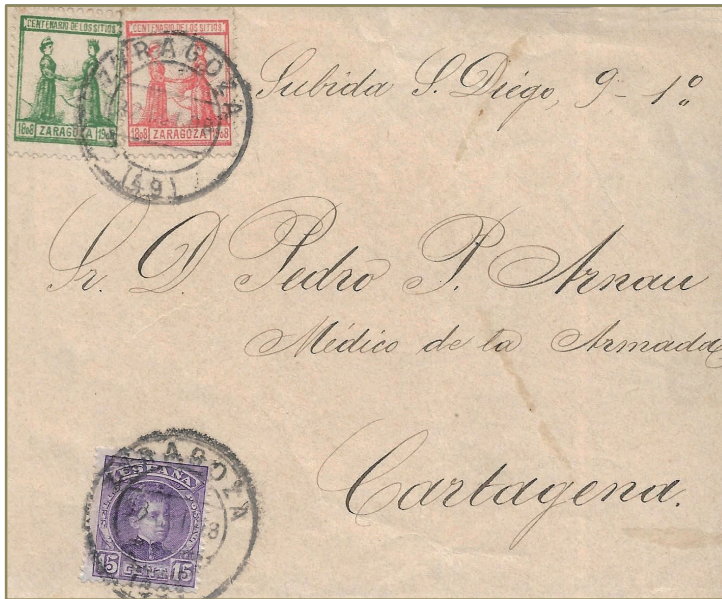 CENTENARIO DE LOS SITIOS
1808 ZARAGOZA
CENTENARIO DE LOS SITIOS
1808 ZARAGOZA 1908
ZARAGOZA
(49)
Subida S. Diégo, 9-1º
Sr. D. Pedro P. Arnau
Médico de la Armada
Cartagena.
ZARAGOZA
ESPAÑA
15 15